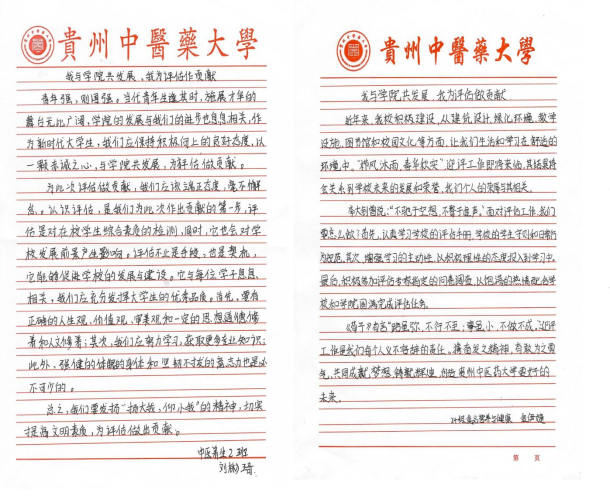 貴州中醫藥大學
我与学院共发展，我为评估作贡献
青年强，则国强。当代青年生逢其时，施展才华的
舞台无比广阔，学院的发展与我们的进步也息息相关，作
为新时代大学生，我们应保持积极向上的良好态度，以
一颗赤诚之心，与学院共发展，为评估做贡献。
为此次评估做贡献，我们应该端正态度，毫不懈
怠。认识评估，是我们为此次作出贡献的第一步，评
估是对在校学生综合素质的检测，同时，它也会对学
校发展前景产生影响。评估不止是手段，也是契机，
它能够促进学校的发展与建设。它与每位学子息息
相关，我们应充分发挥大学生的优秀品质。首先，要有
正确的人生观，价值观，审美观和一定的思想道德修
养和人文修养；其次，我们应努力学习，获取更多专业知识；
此外，强健的体魄的身体和坚韧不拔的意志力也是必
不可少的。
总之，我们要发扬“扬大我，仰小我”的精神，切实
提高文明素质，为评估做出贡献。
中医养生2班
刘
貴州中醫藥大學
我与学院共发展，我为评估做贡献
近年来，我校积极建设，从建筑设计，绿化环境，教学
设施，图书馆和校园文化等方面，让我们生活和学习在舒适的
环境中。“栉风沐雨，春华秋实”迎评工作即将来临，其结果将
会关系到学校未来的发展和荣誉，我们个人的荣辱与其相关。
李大钊曾说：“不驰于空想，不骛于虚声。”面对评估工作，我们
要怎么做？首先，认真学习学校的评估手册，学校的学生守则和日常行
为规范。其次，增强学习的主动性，以积极理性的态度投入到学习中。
最后，积极参加评估专家指定的问卷调查，以饱满的热情配合学
校和学院圆满完成评估任务。
《荀子》有云：“路虽弥，不行不至；事虽小，不做不成。”迎评
工作是我们每个人义不容辞的责任。携奋发之精神，有敢为之勇
气，共同成就梦想，铸就辉煌，创造贵州中医药大学更好的
未来。
级食品营养与健康
第 页